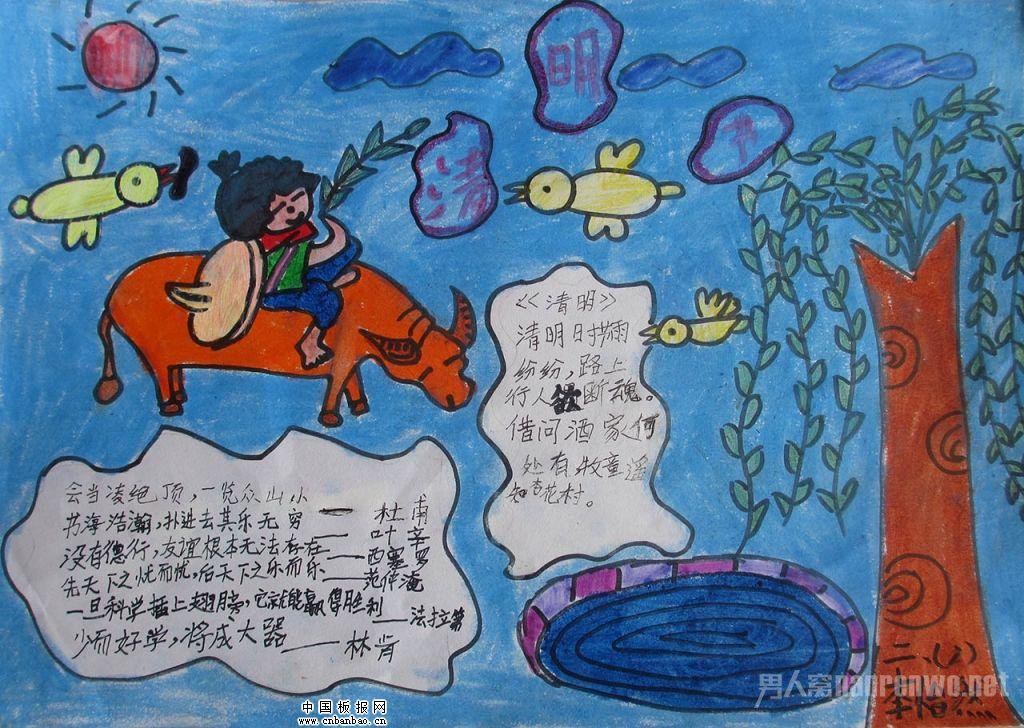 清
明
节
<<清明>
清明时节雨
纷纷，路上
行人欲断魂。
借问酒家何
处有牧童遥
知杏花村。
会当凌绝顶，一览众山小
—杜甫
书海浩瀚，扑进去其乐无穷——叶辛
没有德行，友谊根本无法存在——西塞罗
先天下之忧而忧，后天下之乐而乐——范仲淹
一旦科学插上翅膀，它就能赢得胜利——法拉第
少而好学，将成大器——林肯
二、(2)
李怡然
男人窝nanrenwo.net
中国板报网
www.cnbanbao.cn